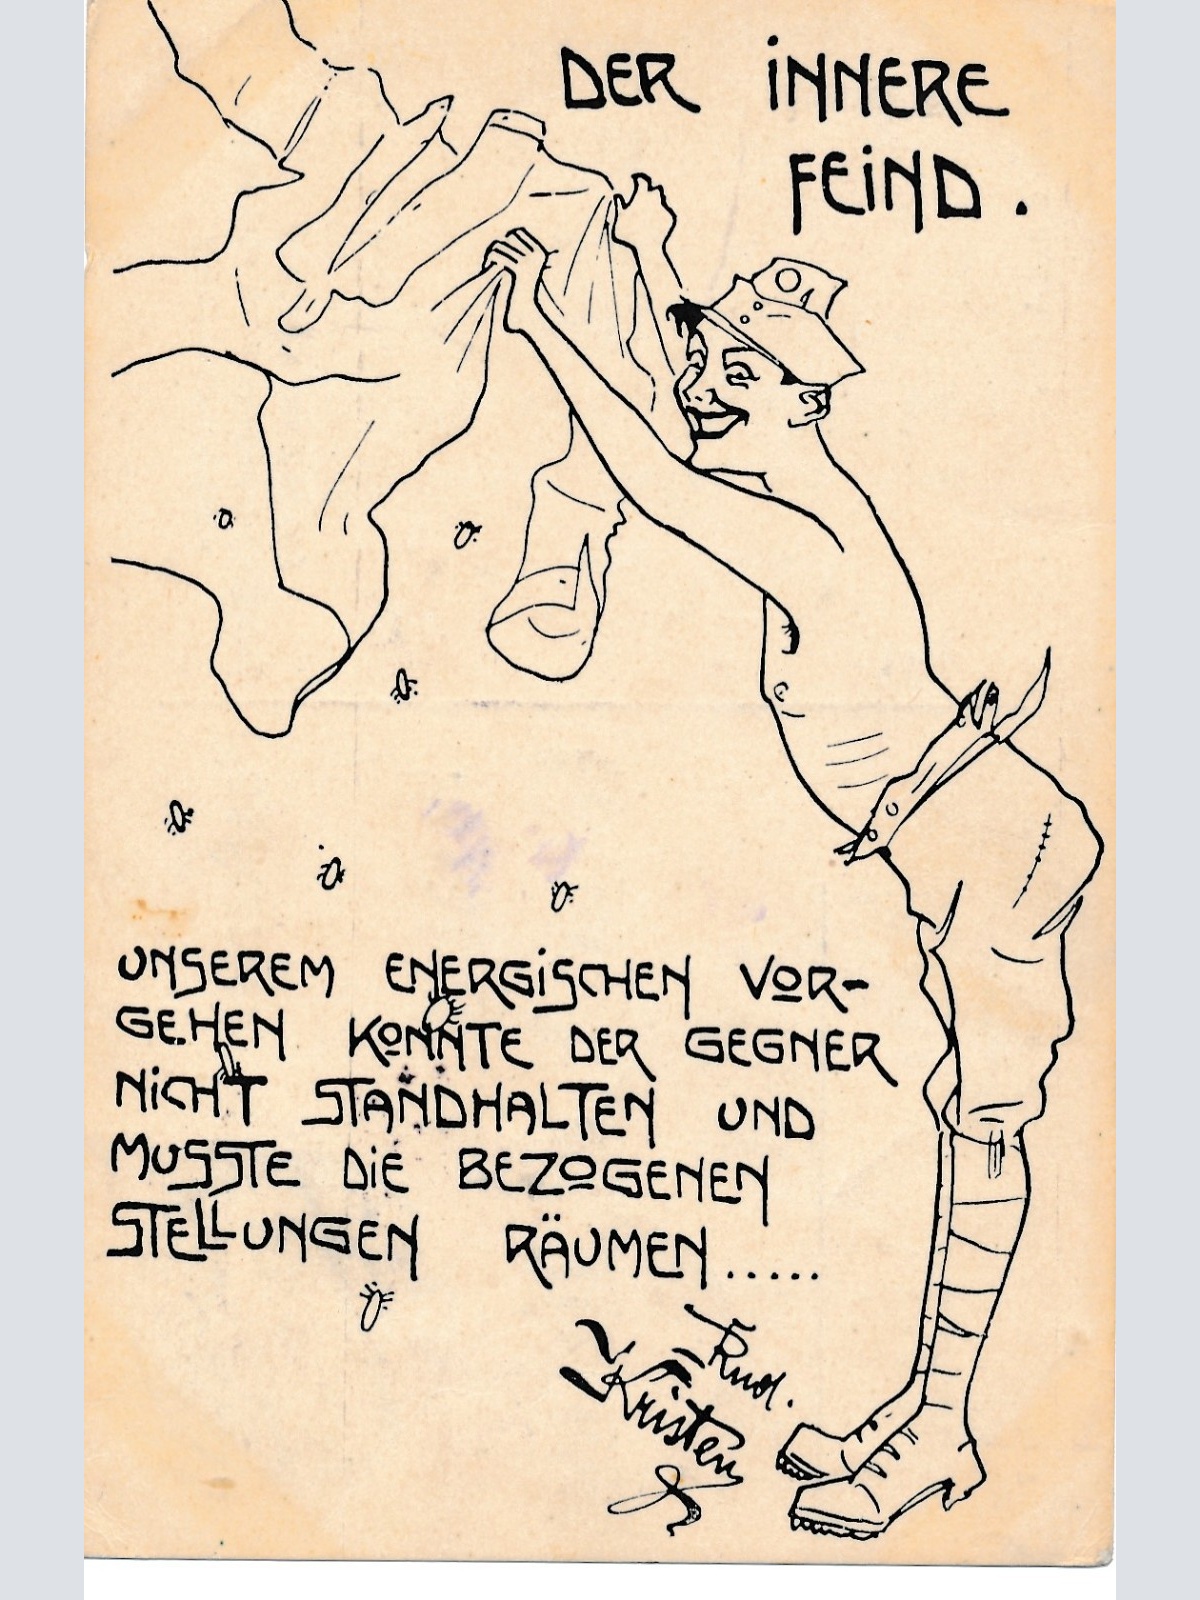 DER INNERE
FEIND.
UNSEREM ENERGISCHEN VOR-
GEHEN KONNTE DER GEGNER
NICHT STANDHALTEN UND
MUSSTE DIE BEZOGENEN
STELLUNGEN RÄUMEN.....
Rud.
Kristen